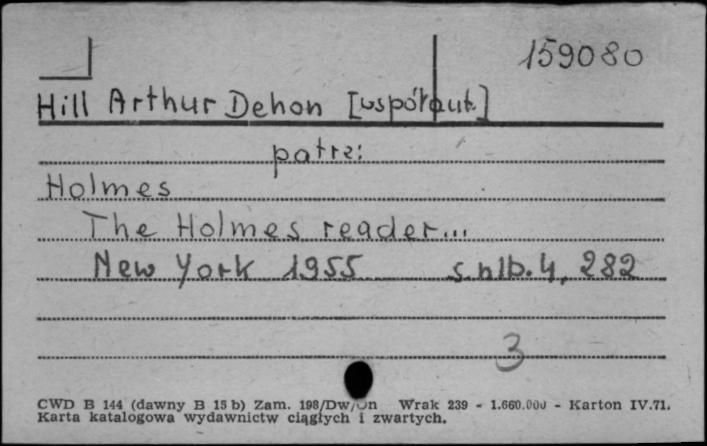 159080
Hill Arthur Dehon [współaut.]
patrz:
Holmes
The Holmes reader...
New York 1955 s. nlb. 4, 282
3
CWD B 144 (dawny B 15 b) Zam. 198/Dw/On Wrak 239 - 1.660.000 - Karton IV.71.
Karta katalogowa wydawnictw ciągłych i zwartych.